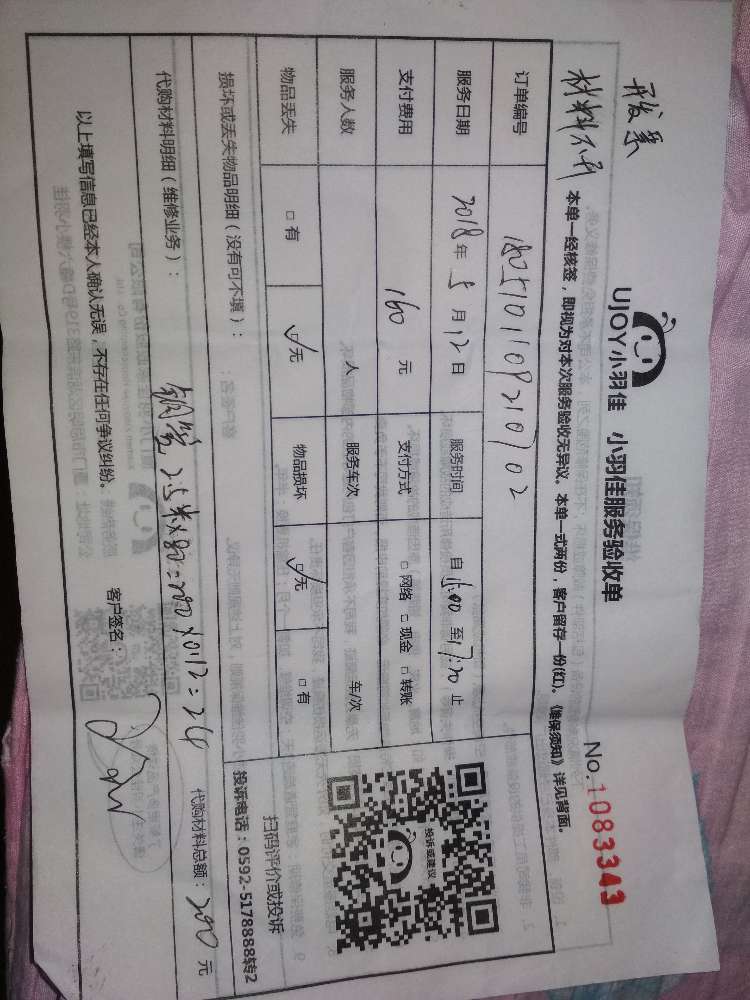 开发票
材料不开
UJOY小羽佳 小羽佳服务验收单
No.1083343
本单一经核签，即视为对本次服务验收无异议。本单一式两份，客户留存一份(红)。《维保须知》详见背面。
订单编号
服务日期 2018年5月12日 服务时间 自 至17:20止
支付费用 160元 支付方式 □网络 □现金 □转账
服务人数 人 服务车次 车/次
物品丢失 □有 ☑无 物品损坏 ☑无 □有
投诉或建议
扫码评价或投诉
投诉电话：0592-5178888转2
损坏或丢失物品明细（没有可不填）：
代购材料明细（维修业务）：
代购材料总额：200元
以上填写信息已经本人确认无误，不存在任何争议纠纷。 客户签名：